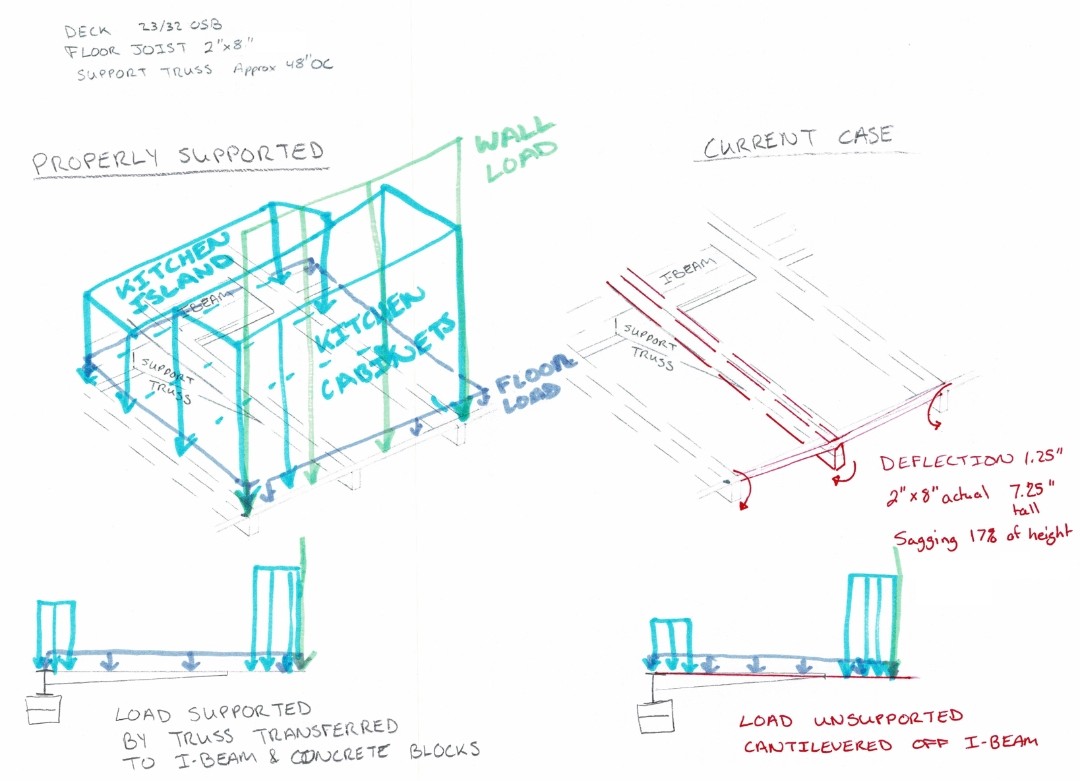 DECK 23/32 OSB
FLOOR JOIST 2"x8"
SUPPORT TRUSS Approx 48"OC
PROPERLY SUPPORTED
WALL
LOAD
KITCHEN
ISLAND
I-BEAM
KITCHEN
CABINETS
SUPPORT
TRUSS
FLOOR
LOAD
LOAD SUPPORTED
BY TRUSS TRANSFERRED
TO I-BEAM & CONCRETE BLOCKS
CURRENT CASE
I-BEAM
SUPPORT
TRUSS
DEFLECTION 1.25"
2"x8" actual 7.25"
tall
Sagging 17% of height
LOAD UNSUPPORTED
CANTILEVERED OFF I-BEAM